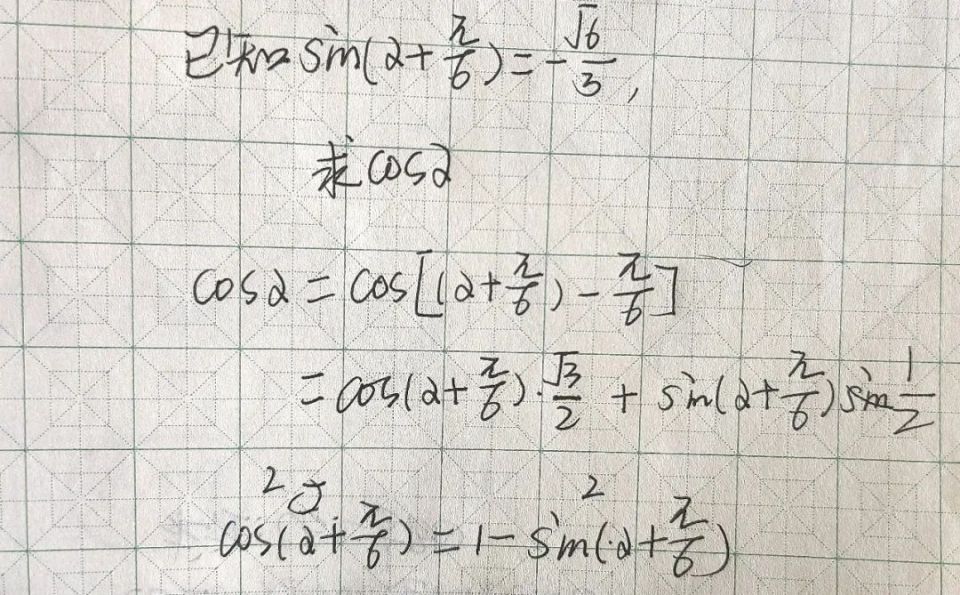 已知 sin(α+π/6)=-√6/3,
求 cosα
cosα = cos[(α+π/6)-π/6]
=cos(α+π/6)·√3/2 + sin(α+π/6)sin 1/2
cos²(α+π/6)=1-sin²(α+π/6)